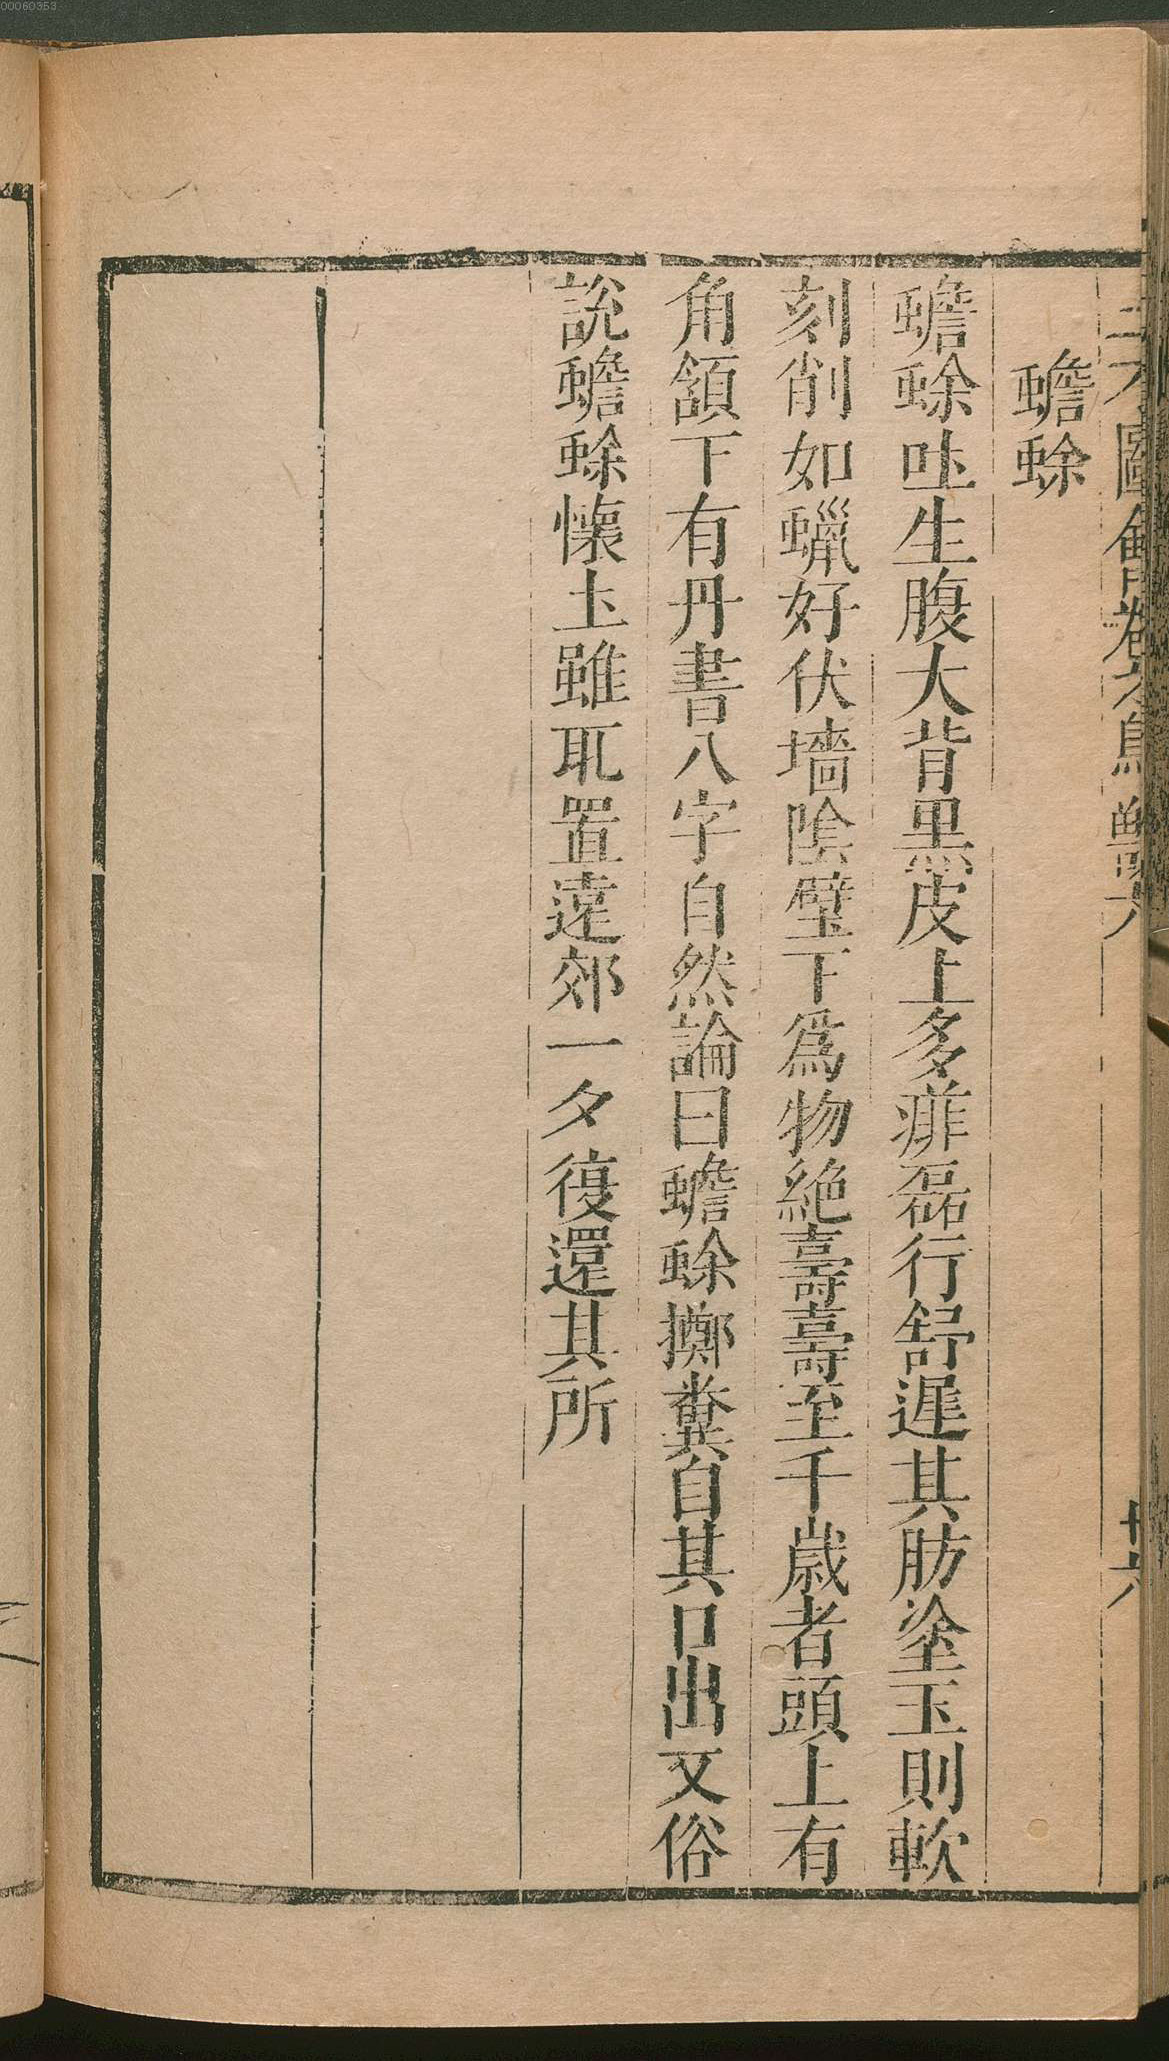 00060353
三才圖會卷六鳥獸六
廿六
蟾蜍
蟾蜍吐生腹大背黒皮上多痱磊行舒遲其肪塗玉則軟
刻削如蠟好伏墻陰壁下爲物絶壽壽至千歳者頭上有
角頷下有丹書八字自然論曰蟾蜍擲糞自其口出又俗
說蟾蜍懷土雖取置遠郊一夕復還其所